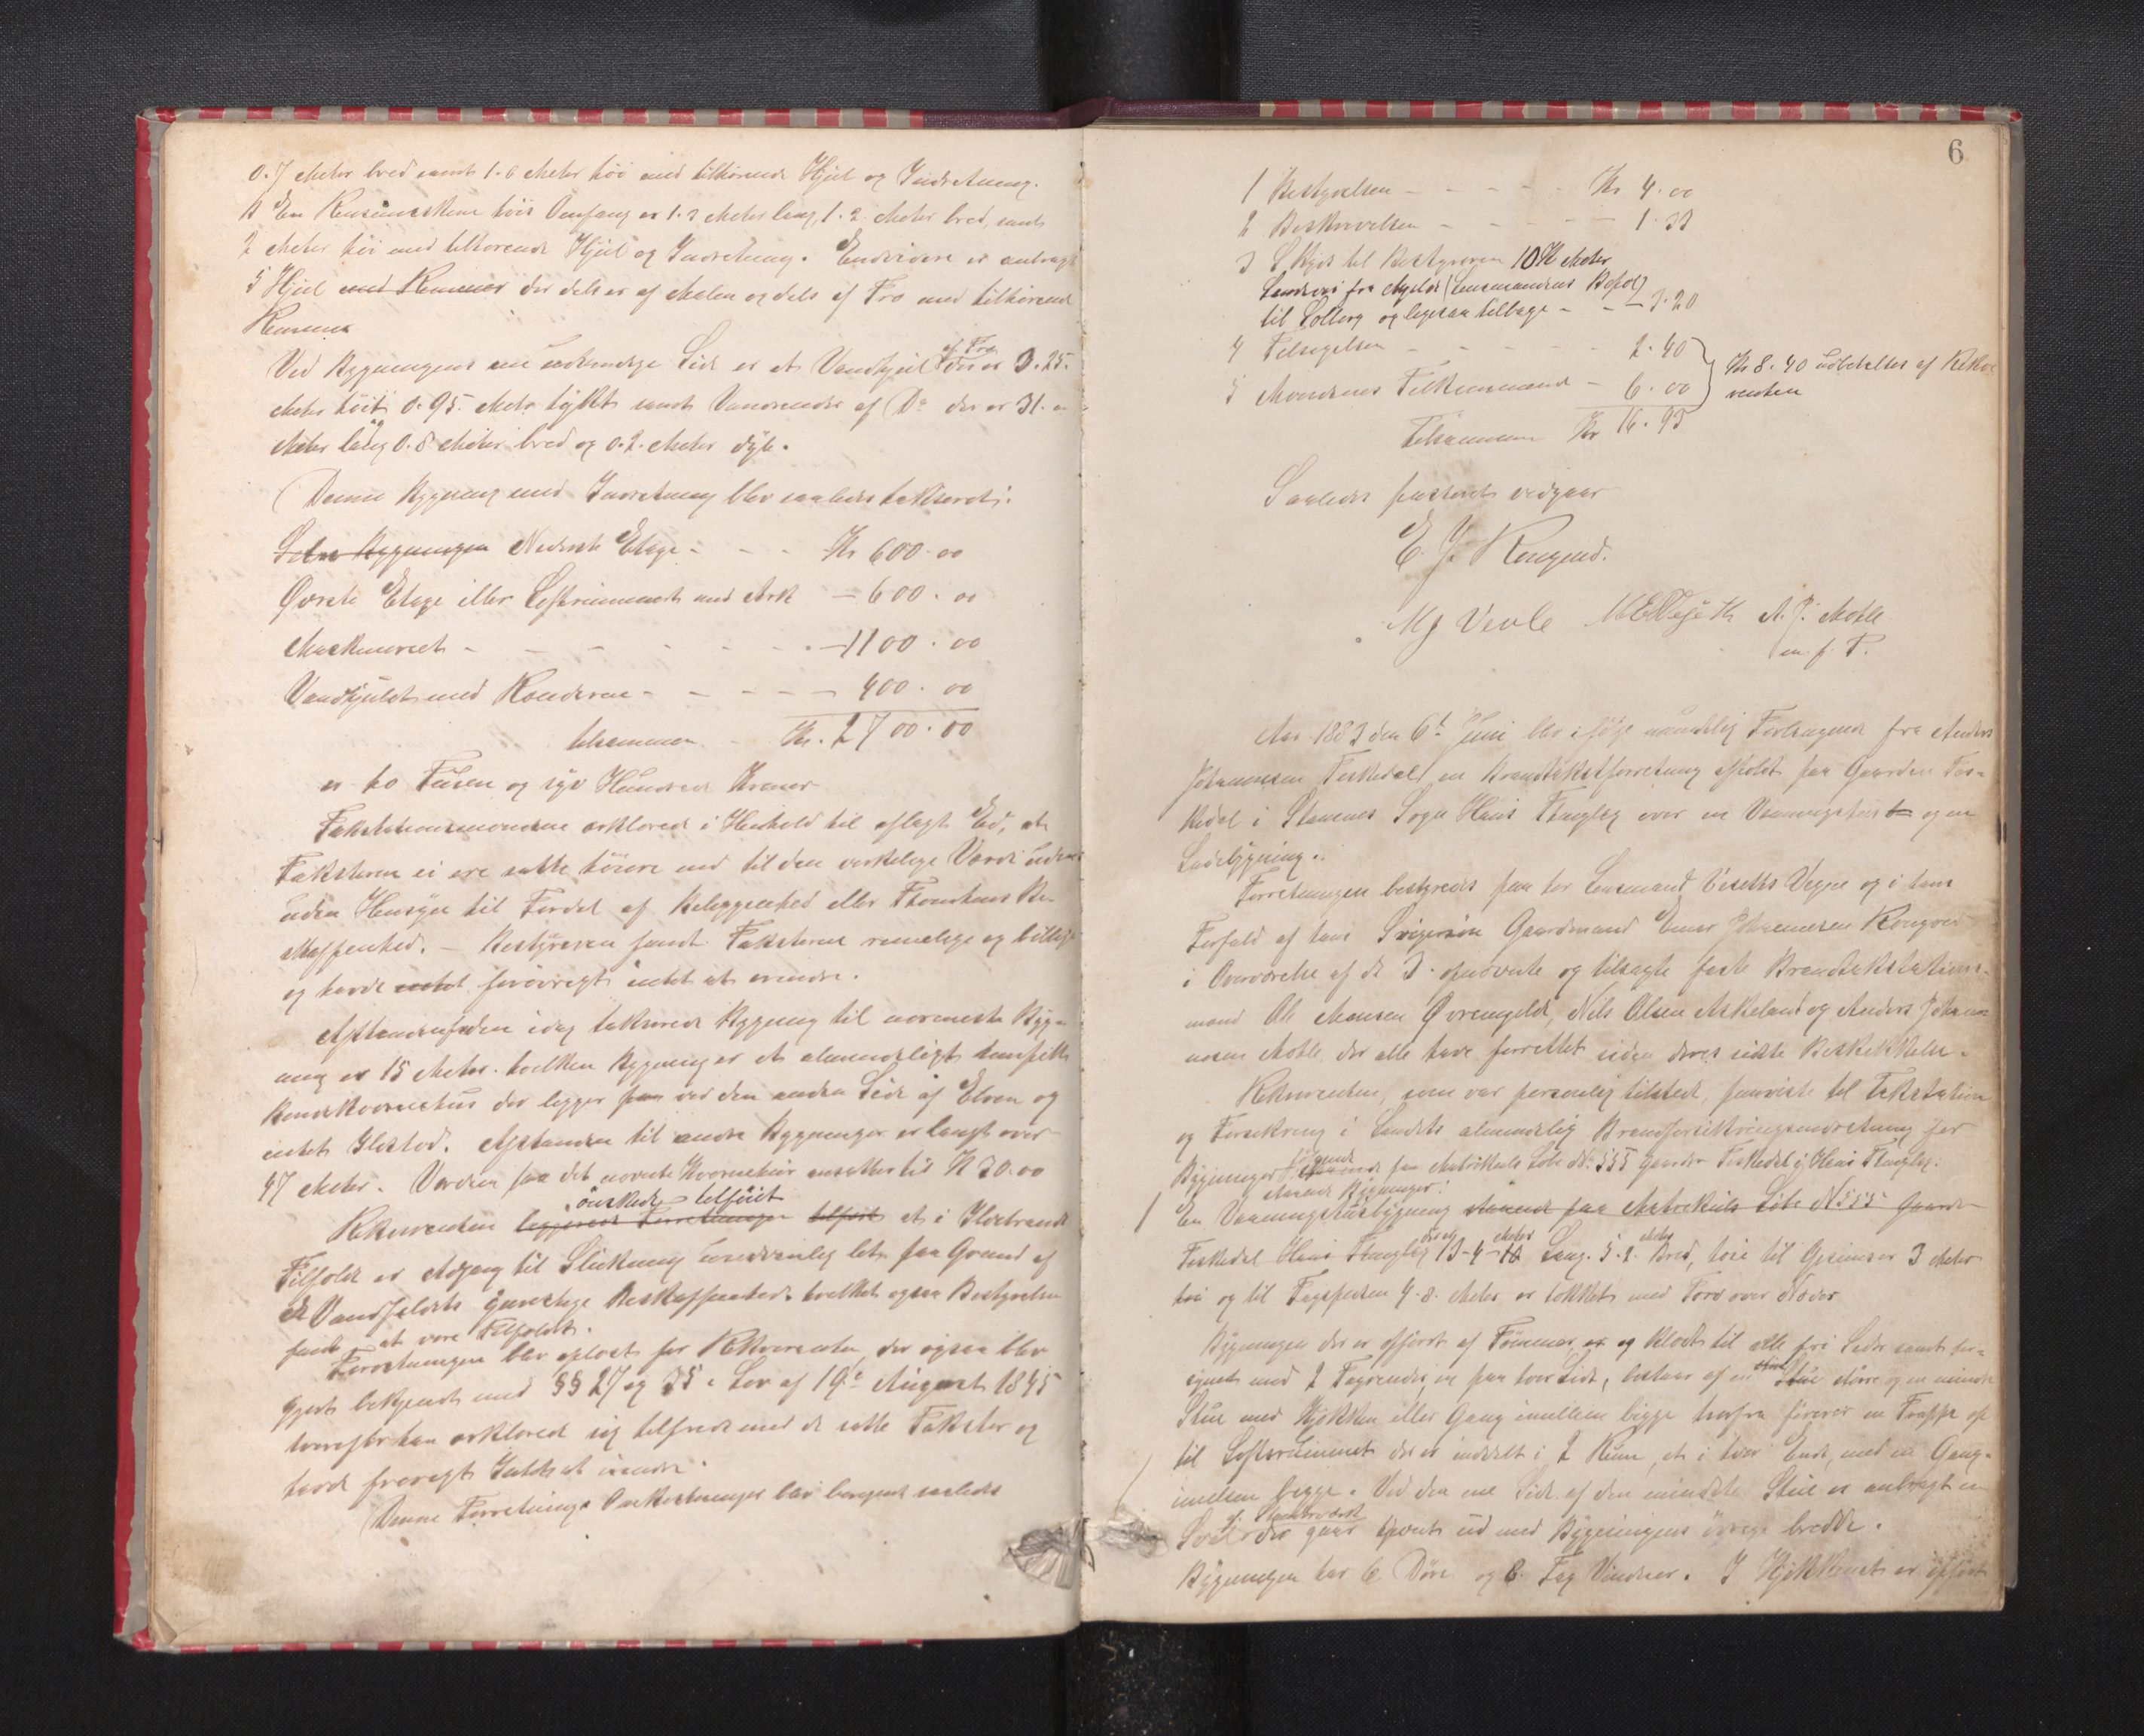 0.7 Meter bred samt 1.6 Meter höi med tilhörende Hjul og Indretning.
4 En Rensemaskine hvis Omfang er 1.3 Meter lang, 1.2 Meter bred, samt
2 Meter höi med tilhörende Hjul og Indretning. Endvidere er anbragt
5 Hjul med Remmer der dels er af Malm og dels af Træ med tilhörende
Remmer
Ved Bygningens ene udvendige Side er et Vandhjul af Træ der er 3.25.
Meter höit 0.95. Meter tykt samt Vandrender af Do der er 31.
Meter lang 0.8 Meter bred og 0.2. Meter dyb.
Denne Bygning med Indretning blev saaledes taxeret:
Selve Bygningen Nederste Etage - - - Kr 600.00
Øverste Etage eller Loftrummet med Ark - 600.00
Maskineriet - - - - - - 1100.00
Vandhjulet med Renderne - - - - 400.00
tilsammen - Kr. 2700.00
er to Tusen og syv Hundrede Kroner
Takstationsmændene erklærede i Henhold til aflagt Ed, at
Taksterne ei ere satte höiere end til den virkelige Værdi uden
uden Hensyn til Fordel af Beliggenhed eller Tomtens Be-
skaffenhed. - Bestyreren fandt Taksterne rimelige og billige
og havde intet forövrigt intet at erindre.
Afstanden fra den idag takserede Bygning til nærmeste Byg-
ning er 15 Meter. hvilken Bygning er et almindeligt
Bondekværnehus der ligger paa ved den anden Side af Elven og
intet Ildsted. Afstanden til andre Bygninger er langt over
47 Meter. Værdien paa det nævnte Kværnehus ansættes til Kr 30.00
önskede tilföiet
Rekvirenten begjerede Forretningen tilfört at i Ildebrands
Tilfælde er Adgang til Slukning usædvanlig let paa Grund af
at Vandfaldets gunstige Beskaffenhed. hvilket ogsaa Bestyrelsen
fandt at være Tilfældet.
Forretningen blev oplæst for Rekvirenten, der ogsaa blev
gjort bekjendt med §§ 27 og 35 i Lov af 19de August 1845
hvorefter han erklærede sig tilfreds med de satte Takster og
havde forövrigt Intet at erindre.
Denne Forretnings Omkostninger blev beregnet saaledes
6
1 Bestyrelsen - - - - - Kr 4.00
2 Beskrivelsen - - - - - 1.33
3 Skyds til Bestyreren 10 Kl Meter
Landevei fra Mjelde (Lensmandens Bopæl)
til Solberg og ligesaa tilbage - - - 3.20
4 Tilsigelsen - - - - - 2.40
5 Mændenes Tilkommende - 6.00
Kr 8.40 udbetaltes af Rekvi-
renten
Tilsammen Kr 16.93
Saaledes passeret vedgaar
E. J. Rongved.
A. J. Mothe
m. f. P.
Aar 1883 den 6t Juni blev ifölge mundtlig Forlangende fra Anders
Johannesen Teskedal en Brandtakstforretning afholdt paa Gaarden Tes-
kedal i Stamnes Sogn Haus Thinglag over en Vaaningshus og en
Ladebygning.
Forretningen bestyredes paa hr Lensmand Veseths Vegne og i hans
Forfald af hans Svigersön Gaardmand Einar Johannesen Rongved
i Overværelse af de 3. opnævnte og tilsagte faste Brandtakstations-
mænd Ole Monsen Øvremjelde, Nils Olsen Askeland og Anders Johan-
nesen Mothe, der alle have forrettet siden deres sidste Beskikkelse.
Rekvirenten, som var personlig tilstede, paaviste til Takstation
og Forsikring i Landets almindelig Brandforsikringsindretning fer
Bygninger fölgende paa Matrikuls Löbe No 555 Gaarden Teskedal i Haus Thinglag:
staaende Bygninger:
1 En Vaaningshusbygning staaende paa Matrikuls Löbe No 555 Gaarde
Teskedal Haus Thinglag der er 13-4 Meter Lang. 5.2. Meter Bred, höi til Gesimser 3 Meter
höi og til Tagspidsen 4.8. Meter er tækket med Torv over Næver
Bygningen der er opfört af Tömmer er og klædt til alle fire Sider samt for-
synet med 2 Tagrender, en paa hver Side, bestaar af en Stue större og en mindre
Stue med Kjökken eller Gang imellem begge hvorfra förer en Trappe op
til Loftsrummet der er inddelt i 2 Rum, et i hver Ende, med en Gang
imellem begge. Ved den ene Side af den mindste Stue er anbragt en
af Standerværk
Sval der gaar tvert ud med Bygningens övrige bredde.
Bygningen har 6 Döre og 6. Fag Vinduer. I Kjökkenet er opfört